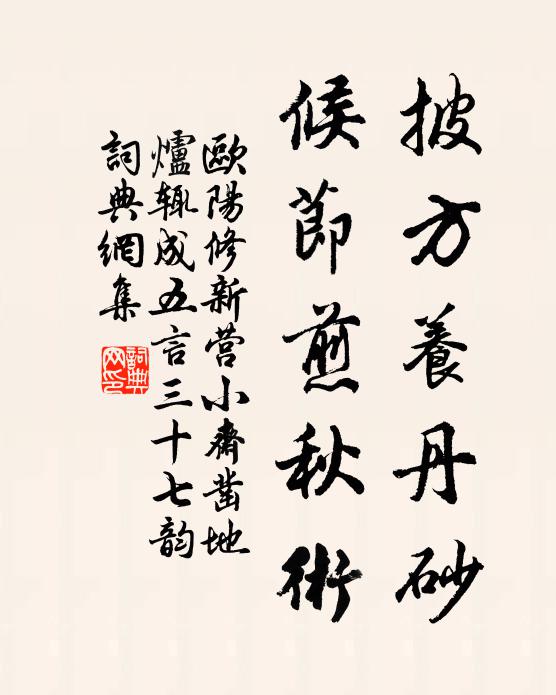 披方養丹砂
候節煎秋術
歐陽修新營小齋凿地
爐辄成五言三十七韵
詞典網集
詞典网印